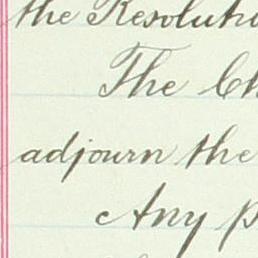 the Resoluti
The Ch
adjourn the
Any p